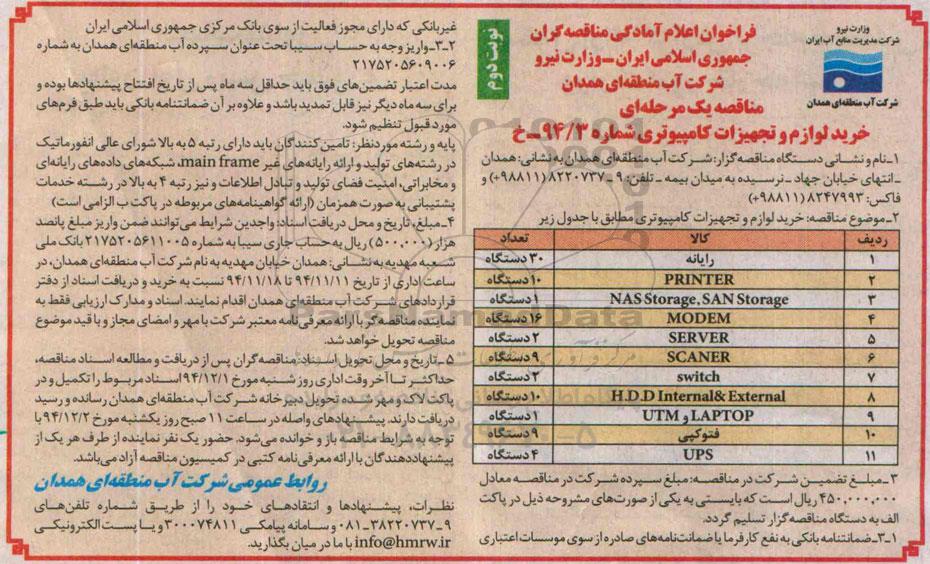 وزارت نیرو
شرکت مدیریت منابع آب ایران
شرکت آب منطقه‌ای همدان
فراخوان اعلام آمادگی مناقصه‌گران
جمهوری اسلامی ایران ـ وزارت نیرو
شرکت آب منطقه‌ای همدان
مناقصه یک مرحله‌ای
خرید لوازم و تجهیزات کامپیوتری شماره ۹۴/۳ـ خ
نوبت دوم
۱ـ نام و نشانی دستگاه مناقصه‌گزار: شرکت آب منطقه‌ای همدان به نشانی: همدان
ـ انتهای خیابان جهاد ـ نرسیده به میدان بیمه ـ تلفن: ۹ـ۸۲۲۰۷۳۷(۹۸۸۱۱+) و
فاکس: ۸۲۴۷۹۹۳(۹۸۸۱۱+)
۲ـ موضوع مناقصه: خرید لوازم و تجهیزات کامپیوتری مطابق با جدول زیر
ردیف کالا تعداد
۱ رایانه ۳۰ دستگاه
۲ PRINTER ۱۰ دستگاه
۳ NAS Storage, SAN Storage ۱ دستگاه
۴ MODEM ۱۶ دستگاه
۵ SERVER ۲ دستگاه
۶ SCANER ۹ دستگاه
۷ switch ۲ دستگاه
۸ H.D.D Internal& External ۱۰ دستگاه
۹ LAPTOP و UTM ۱ دستگاه
۱۰ فتوکپی ۹ دستگاه
۱۱ UPS ۴ دستگاه
۳ـ مبلغ تضمین شرکت در مناقصه: مبلغ سپرده شرکت در مناقصه معادل
۴۵۰,۰۰۰,۰۰۰ ریال است که بایستی به یکی از صورت‌های مشروحه ذیل در پاکت
الف به دستگاه مناقصه‌گزار تسلیم گردد.
۱ـ۳ـ ضمانتنامه بانکی به نفع کارفرما یا ضمانت‌نامه‌های صادره از سوی موسسات اعتباری
غیربانکی که دارای مجوز فعالیت از سوی بانک مرکزی جمهوری اسلامی ایران
۲ـ۳ـ واریز وجه به حساب سیبا تحت عنوان سپرده آب منطقه‌ای همدان به شماره
۲۱۷۵۲۰۵۶۰۹۰۰۶
مدت اعتبار تضمین‌های فوق باید حداقل سه ماه پس از تاریخ افتتاح پیشنهادها بوده و
برای سه ماه دیگر نیز قابل تمدید باشد و علاوه بر آن ضمانتنامه بانکی باید طبق فرم‌های
مورد قبول تنظیم شود.
پایه و رشته مورد نظر: تامین کنندگان باید دارای رتبه ۵ به بالا شورای عالی انفورماتیک
در رشته‌های تولید و ارائه رایانه‌های غیر main frame، شبکه‌های داده‌های رایانه‌ای
و مخابراتی، امنیت فضای تولید و تبادل اطلاعات و نیز رتبه ۴ به بالا در رشته خدمات
پشتیبانی به صورت همزمان (ارائه گواهینامه‌های مربوطه در پاکت ب الزامی است)
۴ـ مبلغ، تاریخ و محل دریافت اسناد: واجدین شرایط می‌توانند ضمن واریز مبلغ پانصد
هزار (۵۰۰,۰۰۰) ریال به حساب جاری سیبا به شماره ۲۱۷۵۲۰۵۶۱۱۰۰۵ بانک ملی
شعبه مهدیه به نشانی: همدان خیابان مهدیه به نام شرکت آب منطقه‌ای همدان، در
ساعت اداری از تاریخ ۹۴/۱۱/۱۱ تا ۹۴/۱۱/۱۸ نسبت به خرید و دریافت اسناد از دفتر
قراردادهای شرکت آب منطقه‌ای همدان اقدام نمایند. اسناد و مدارک ارزیابی فقط به
نماینده مناقصه‌گر با ارائه معرفی‌نامه معتبر شرکت با مهر و امضای مجاز و با قید موضوع
مناقصه تحویل خواهد شد.
۵ـ تاریخ و محل تحویل اسناد: مناقصه‌گران پس از دریافت و مطالعه اسناد مناقصه،
حداکثر تا آخر وقت اداری روز شنبه مورخ ۹۴/۱۲/۱ اسناد مربوط را تکمیل و در
پاکت لاک و مهر شده تحویل دبیرخانه شرکت آب منطقه‌ای همدان رسانده و رسید
دریافت دارند. پیشنهادهای واصله در ساعت ۱۱ صبح روز یکشنبه مورخ ۹۴/۱۲/۲ با
توجه به شرایط مناقصه باز و خوانده می‌شود. حضور یک نفر نماینده از طرف هر یک از
پیشنهاددهندگان با ارائه معرفی‌نامه کتبی در کمیسیون مناقصه آزاد می‌باشد.
روابط عمومی شرکت آب منطقه‌ای همدان
نظرات، پیشنهادها و انتقادهای خود را از طریق شماره تلفن‌های
۹ـ۳۸۲۲۰۷۳۷ـ۰۸۱ و سامانه پیامکی ۳۰۰۰۷۴۸۱۱ و یا پست الکترونیکی
info@hmrw.ir با ما در میان بگذارید.